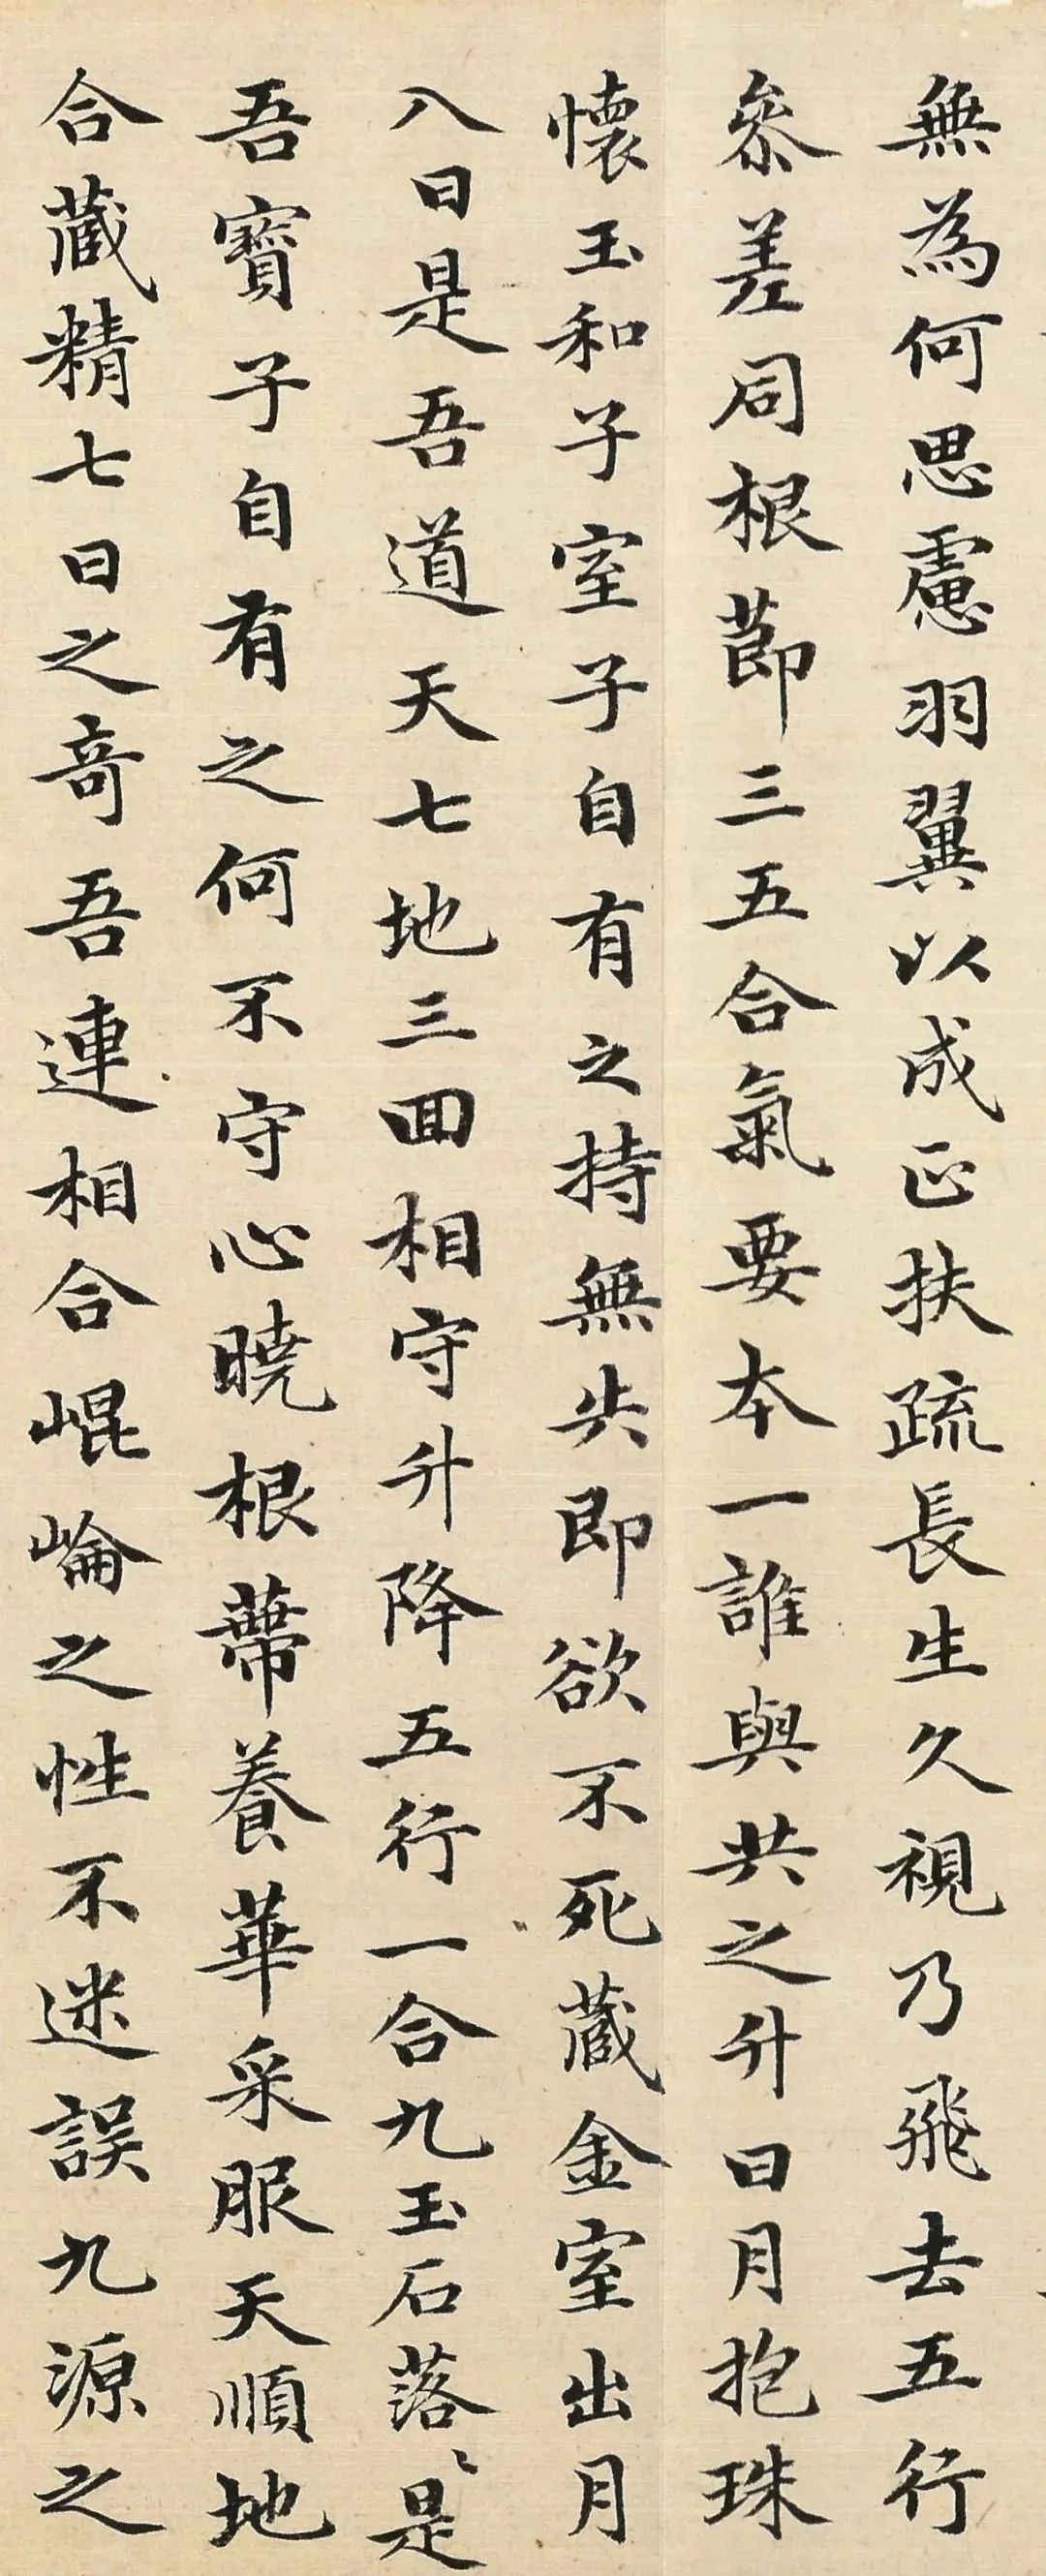 無為何思慮羽翼以成正扶疏長生久視乃飛去五行
參差同根莭三五合氣要本一誰與共之升日月抱珠
懷玉和子室子自有之持無失即欲不死藏金室出月
入日是吾道天七地三回相守升降五行一合九玉石落〻是
吾寶子自有之何不守心曉根蔕養華采服天順地
合藏精七日之奇吾連相合崐崘之性不迷誤九源之